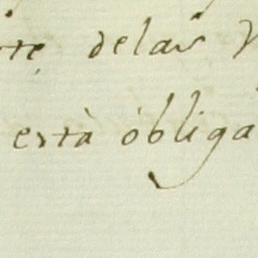 te delas
està òbliga